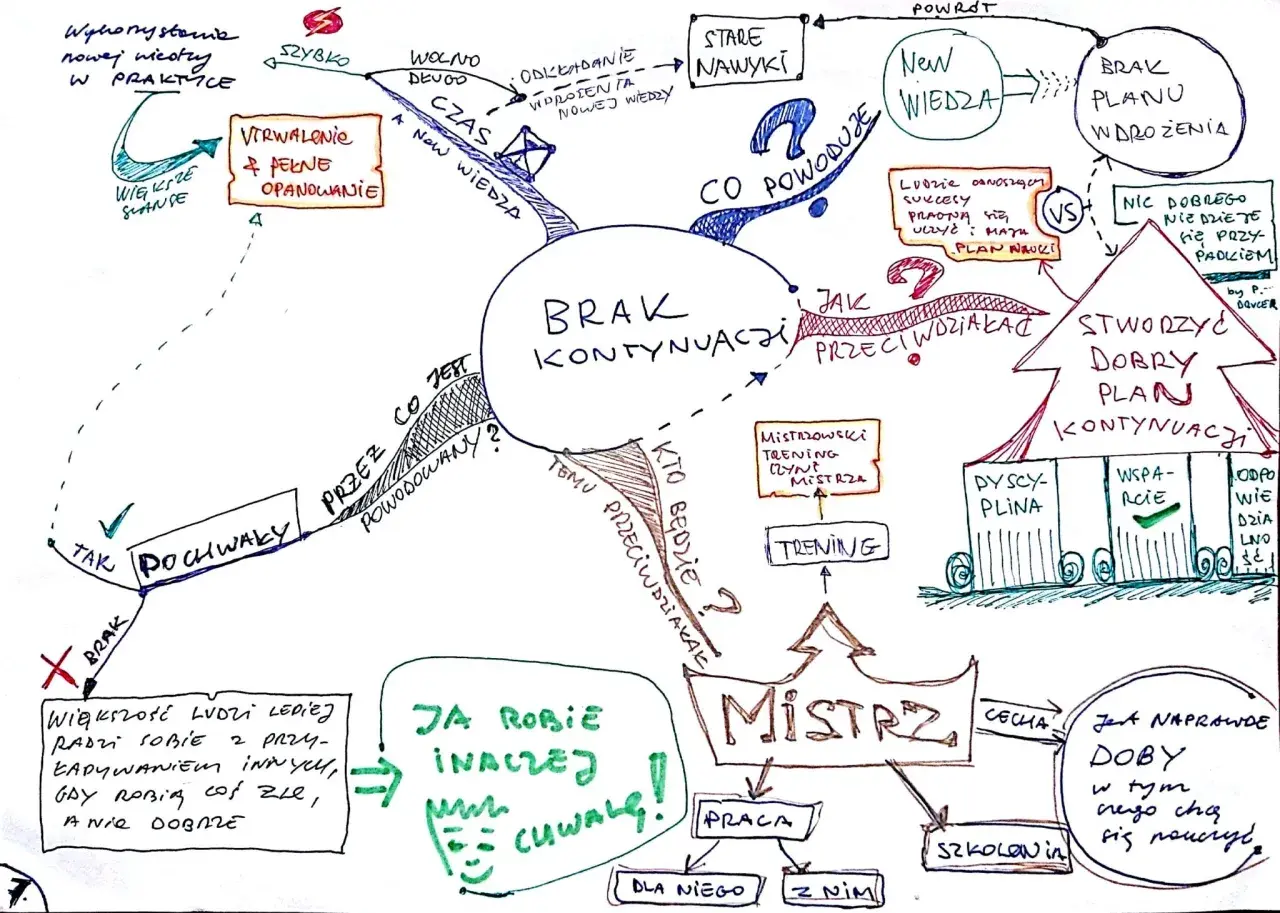 Wykorzystanie
nowej wiedzy
W PRAKTYCE
SZYBKO
WOLNO
DŁUGO
ODKŁADANIE
WDROŻENIA
NOWEJ WIEDZY
STARE
NAWYKI
POWRÓT
NEW
WIEDZA
BRAK
PLANU
WDROŻENIA
WIĘKSZE
SZANSE
UTRWALENIE
& PEŁNE
OPANOWANIE
CZAS
A NEW WIEDZA
CO POWODUJE
?
LUDZIE ODNOSZĄCY
SUKCESY
PRAGNĄ SIĘ
UCZYĆ i MAJĄ
PLAN NAUKI
VS
NIC DOBREGO
NIE DZIEJE
SIĘ PRZY-
PADKIEM
by P.
DRUCER
BRAK
KONTYNUACJI
JAK
PRZECIWDZIAŁAĆ
?
STWORZYĆ
DOBRY
PLAN
KONTYNUACJI
DYSCY-
PLINA
WSPA-
RCIE
ODPO
WIE
DZIA
LNO
ŚĆ
PRZEZ CO JEST
POWODOWANY?
POCHWAŁY
TAK
BRAK
WIĘKSZOŚĆ LUDZI LEPIEJ
RADZI SOBIE Z PRZY-
ŁAPYWANIEM INNYCH,
GDY ROBIĄ COŚ ŹLE,
A NIE DOBRZE
JA ROBIE
INACZEJ
CHWALĘ!
KTO BĘDZIE?
TEMU PRZECIWDZIAŁAŁ
MISTRZOWSKI
TRENING
CZYNI
MISTRZA
TRENING
MiSTRZ
CECHA
Jest NAPRAWDE
DOBY
w tym
czego chcę
się nauczyć
PRACA
DLA NIEGO
Z NIM
SZKOLENIA
7.